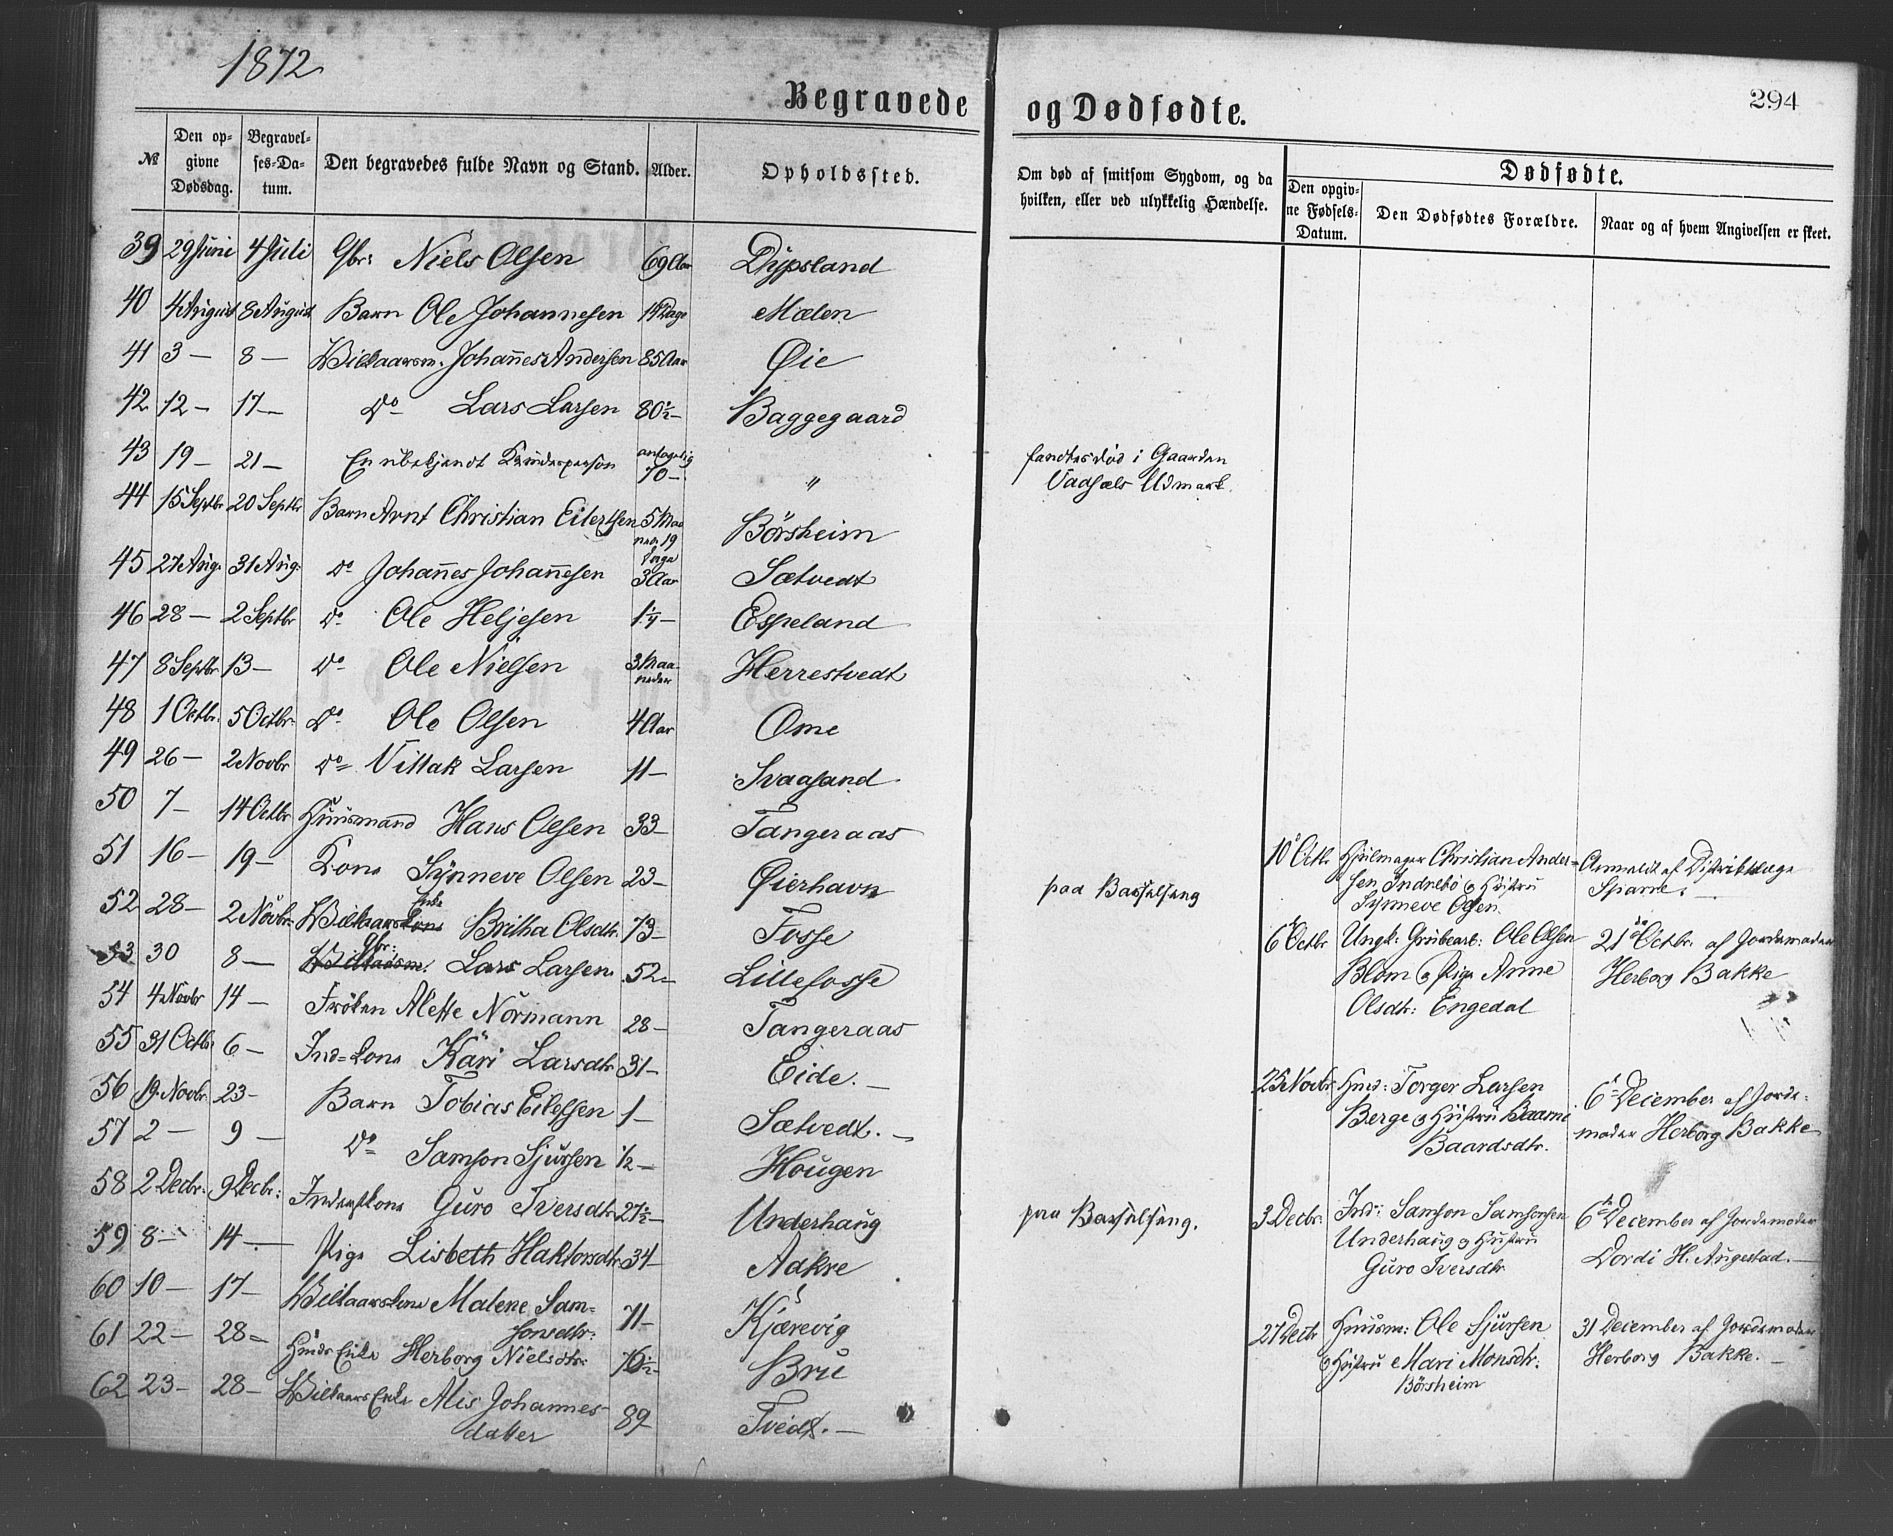 1872
Begravede og Dødfødte.
294
№
Den opgivne Dødsdag.
Begravelses-Datum.
Den begravedes fulde Navn og Stand.
Alder.
Opholdssted.
Om død af smitsom Sygdom, og da hvilken, eller ved ulykkelig Hændelse.
Dødfødte.
Den opgivne Fødsels-Datum.
Den Dødfødtes Forældre.
Naar og af hvem Angivelsen er skeet.
39 29 Juni 4 Juli Gbr: Niels Olsen 69 Aar Dypsland
40 4 August 8 August Barn Ole Johannesen 14 Dage Mælen
41 3 — 8 — Wilkaarsm. Johannes Andersen 85 Aar Øie
42 12 — 17 — Do Lars Larsen 80½ — Baggegaard
43 19 — 21 — En ubekjendt Kvindeperson antagelig 70 — " fandtes død i Gaarden
Vadsels Udmark.
44 15 Septbr 20 Septbr Barn Arnt Christian Eilertsen 5 Maaneder 19 Dage Börsheim
45 27 Aug. 31 Aug. Do Johannes Johannesen 3 Aar Sætvedt
46 28 — 2 Septbr Do Ole Heljesen 1¼ — Espeland
47 8 Septbr 13 — Do Ole Nielsen 3 Maaneder Herrestvedt
48 1 Octbr. 5 Octbr. Do Ole Olsen 4 Aar Ome
49 26 — 2 Novbr Do Villak Larsen 11 — Svaasand
50 7 — 14 Octbr Huusmand Hans Olsen 33 — Tangeraas
51 16 — 19 — Kone Synneve Olsen 23 — Øierhavn paa Barselseng
52 28 — 2 Novbr. Wilkaars Kone Enke Britha Olsdtr. 73 — Fosse
53 30 8 — Wilkaarsm. Gbr: Lars Larsen 52 — Lillefosse
54 4 Novbr 14 — Frøken Alette Normann 28 — Tangeraas
55 31 Octbr 6 — Ind=Kone Kari Larsdtr 31 — Eide. —
56 19 Novbr. 23 — Barn Tobias Eilefsen 1 — Sætvedt. —
57 2 — 9 — Do Samson Sjursen ½ — Hougen
58 2 Decbr: 9 Decbr: Inderstkone Guro Iversdtr 27½ — Underhaug paa Barselseng.
59 8 — 14 — Pige Lisbeth Haktorsdtr 34 — Aakre
60 10 — 17 — Wilkaarskone Malene Samsonsdtr. 71 — Kjærevig
61 22 — 28 — Huusm Enke Herborg Nielsdtr: 76½ — Bru
62 23 — 28 — Wilkaars Enke Alis Johannesdatter 89 — Tvedt. —
10 Octbr. Hjulmager Christian Andersen Indrebö og Hustru Synneve Olsen. Anmeldt af Distriktslæge Sparre. —
6 Octbr Ungk: Grubearb: Ole Olsen Blom og Pige Anne Olsdtr: Engedal 21de Octbr. af Jordemoder Herborg Bakke
25 Novbr. Huusm: Torger Larsen Berge og Hustru Baardsdtr. 6te December af Jordemoder Herborg Bakke
3 Decbr. Ind: Samson Samsonsen Underhaug og Hustru Guro Iversdtr 6te December af Jordemoder Dordi H. Augestad. —
27 Decbr Huusm: Ole Sjursen og Hustru Mari Monsdtr. Börsheim 31 December af Jordemoder Herborg Bakke. —